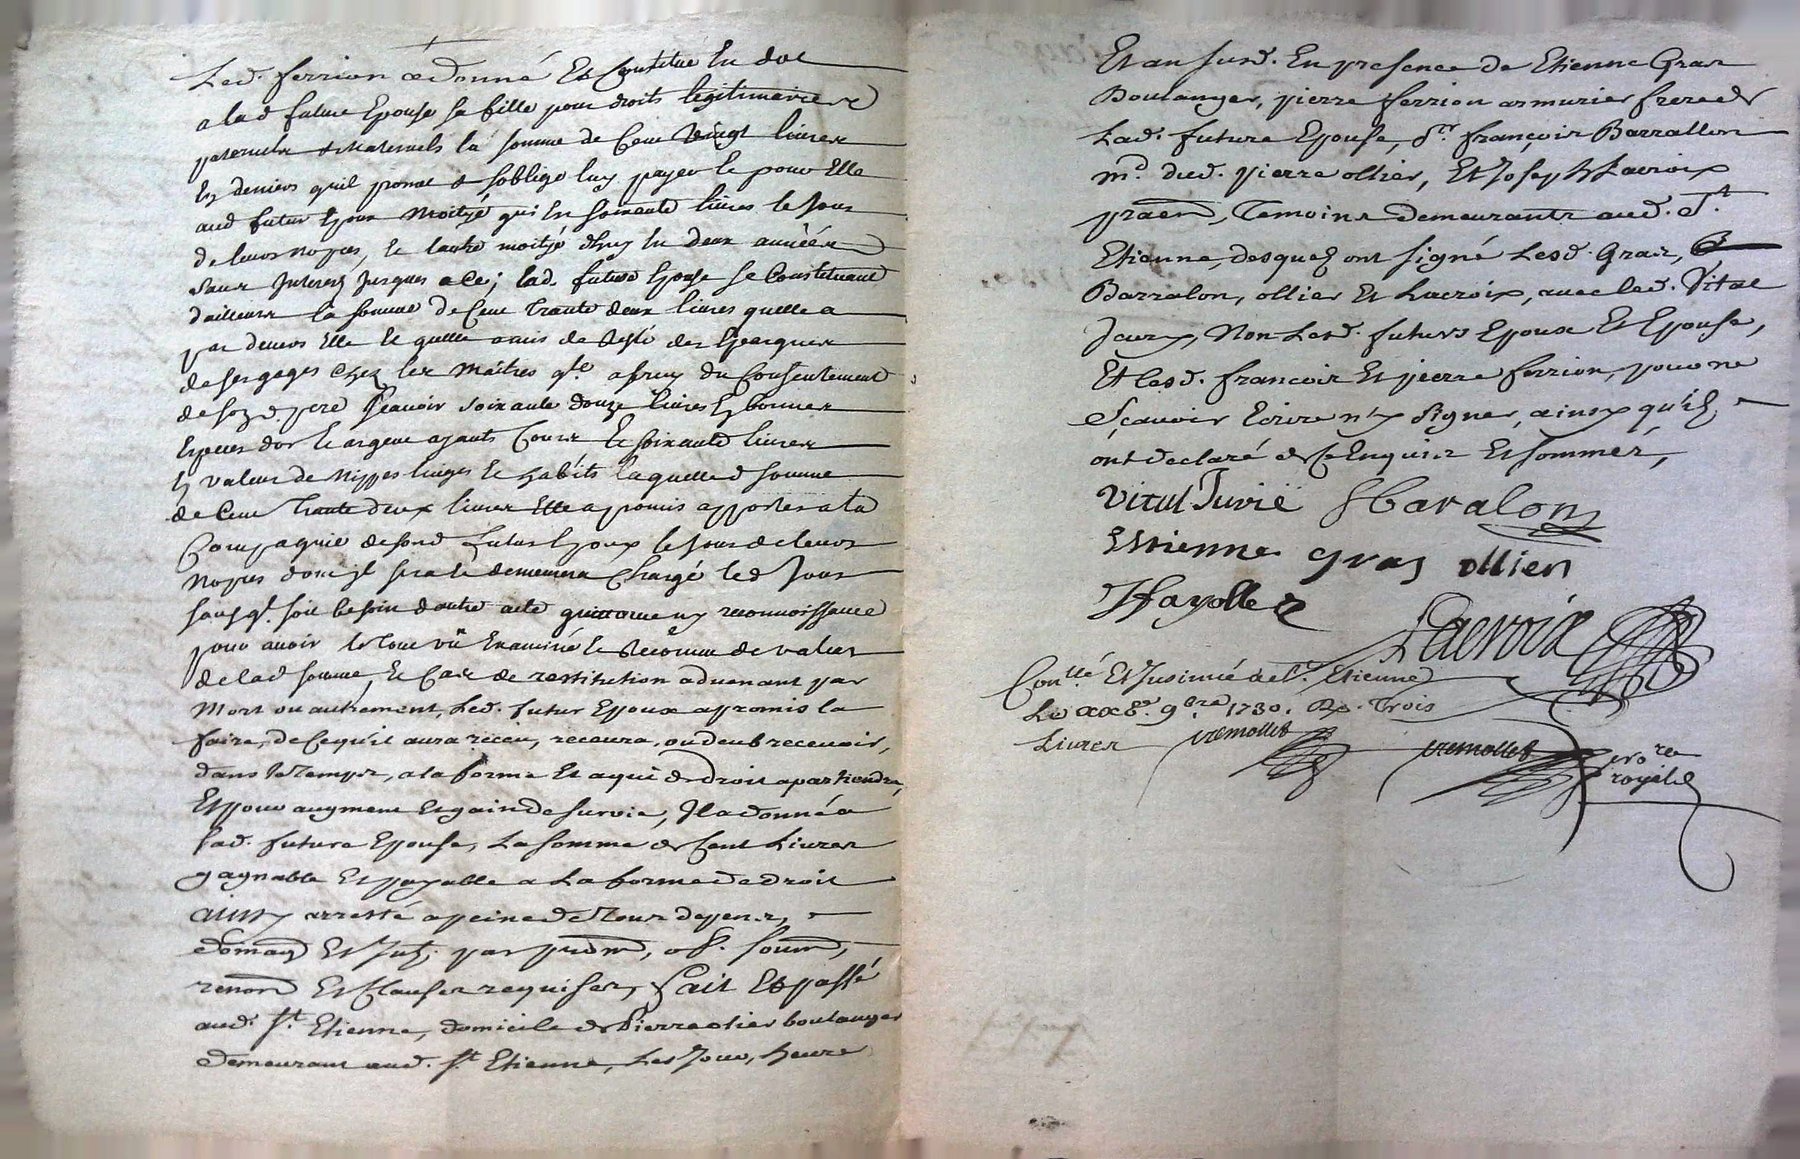 Led. ferrion a donné Et Constitué En dot
a lad future Epouse sa fille pour droits légitimaires
paternels & maternels la somme de Cent vingt livres
En deniers quil promet & soblige luy payer le pour Elle
aud futur Epoux moitjé qui En soixante livres le Jour
de leurs nopces, Et lautre moitjé dhuy En deux années
sans Interest Jusques a Ce; lad. future Epouse se Constituant
dailleurs la somme de Cent Trante deux livres quelle a
par devers Elle Et quelle a mis de Costé des Epargnes
de ses gages Chez les maitres qle a servy du Consentement
de sond pere sçavoir soixante douze livres En bonnes
Especes dor Et argent ayants Cours Et soixante livres
En valeur de nippes linges Et habits laquelled somme
de Cent Trante deux livres Elle a promis apporter a la
Compagnie de sond futur Epoux le Jour de leurs
nopces dont jl sera Et demeurera Chargé led Jour
sans qt. soit besoin dautre acte quittance ny reconnoissance
pour avoir le tout vû Examiné Et reconnu de valeur
de lad somme, Et Cas de restitution advenant par
Mort ou autrement, Led. futur Epoux a promis la
faire, de Cequil aura receu, recevra, ou deub recevoir,
dans le Temps, a la forme Et a qui de droit apartiendra,
Et pour augment Et gain de survie, Il a donné a
lad. future Epouse, La somme de Cent Livres
gagnable Et payable a La forme de droit
ainsy arresté a peine de Tous depens,
domag Et Int; par prom, ob. soum,
renon Et Clauses requises, fait Et passé
aud. St. Etienne, domicile de Pierre olier boulanger
demeurant aud. St Etienne, Les Jour, heure
Et an susd. En presence de Etienne Gras
Boulanger, pierre ferrion armurier frere de
Lad. future Epouse, Sr. françois Barrallon
md. dud. pierre ollier, Et Joseph Lacroix
praen, Temoins demeurants aud. St.
Etienne, desquels ont signé Lesd. Gras,
Barralon, ollier Et Lacroix, avec led. Vital
Non Lesd. futurs Epoux Et Epouse,
Et lesd. francois Et pierre ferrion, pour ne
sçavoir Ecrire ny signer, ainsy qu'ils
ont declaré de Ce Enquis Et sommés,
Vital Juvië Baralon
Estienne gras ollier
Fayolle
Lacroix
Conllé Et Insinué a St. Etienne
Le xx8e. 9bre 1730. Rx. Trois
Livres premollet premollet no re
royal